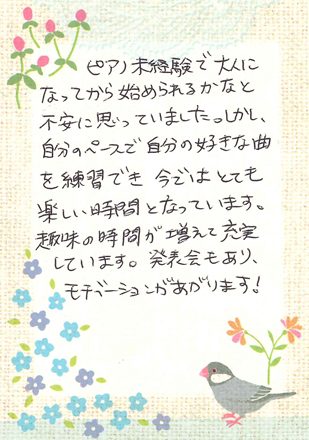 ピアノ未経験で大人に
なってから始められるかなと
不安に思っていました。しかし、
自分のペースで自分の好きな曲
を練習でき 今ではとても
楽しい時間となっています。
趣味の時間が増えて充実
しています。発表会もあり、
モチベーションがあがります!